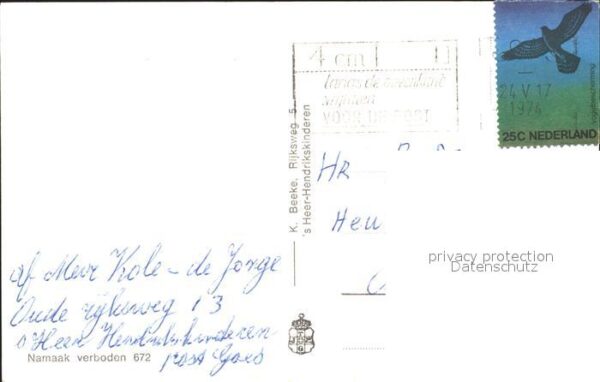 4 cm 11
langs de bovenkant
vrijlaten
VOOR DE POST
24 V 17
1974
vogelbescherming
25C NEDERLAND
K. Beeke, Rijksweg 5
's Heer-Hendrikskinderen
HR
Heu
privacy protection
Datenschutz
af Mevr Kole - de Jonge
Oude rijksweg 13
s Heer Hendrikskinderen
post Goes
Namaak verboden 672